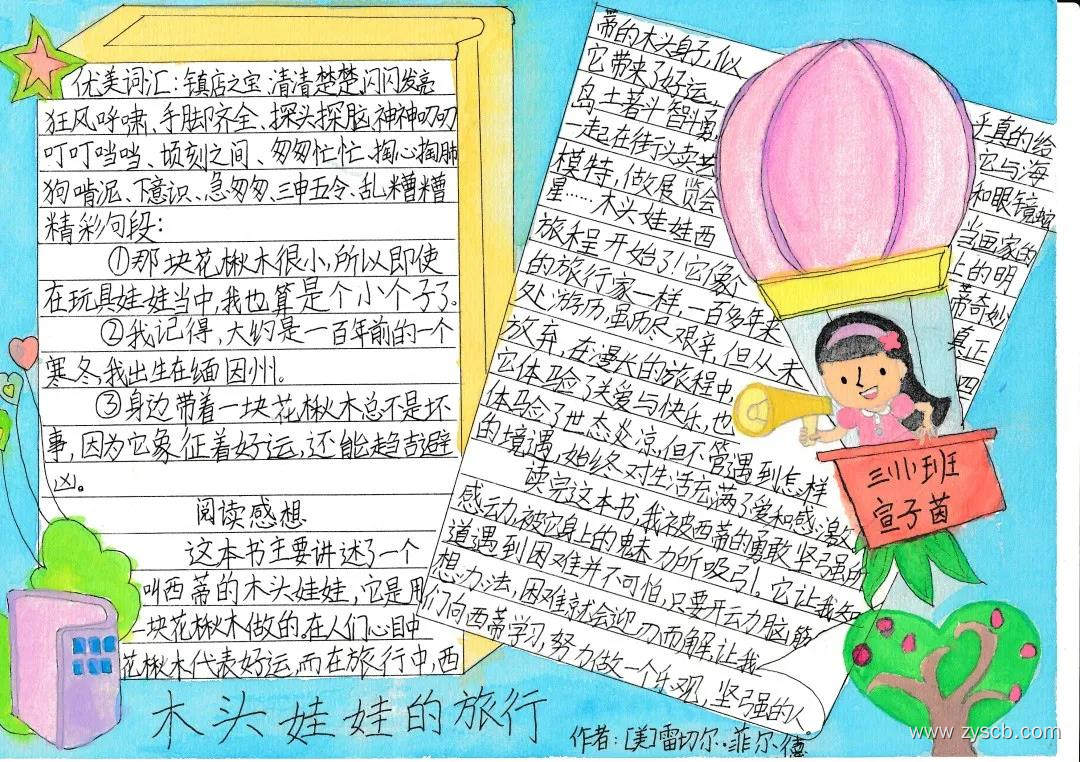 优美词汇：镇店之宝、清清楚楚、闪闪发亮
狂风呼啸、手脚齐全、探头探脑、神神叨叨
叮叮当当、顷刻之间、匆匆忙忙、掏心掏肺
狗啃泥、下意识、急匆匆、三申五令、乱糟糟
精彩句段：
①那块花楸木很小,所以即使
在玩具娃娃当中,我也算是个小个子了。
②我记得,大约是一百年前的一个
寒冬,我出生在缅因州。
③身边带着一块花楸木总不是坏
事,因为它象征着好运,还能趋吉避
凶。
阅读感想
这本书主要讲述了一个
叫西蒂的木头娃娃,它是用
一块花楸木做的。在人们心目中
花楸木代表好运,而在旅行中,西
蒂的木头身子,似乎真的给
它带来了好运。它与海
岛土著斗智斗勇,和眼镜蛇
一起在街头卖艺,当画家的
模特,做展览会上的明
星……木头娃娃西蒂奇妙
旅程开始了!它像个真正
的旅行家一样,一百多年来四
处游历,虽历尽艰辛,但从未
放弃,在漫长的旅程中,
它体验了关爱与快乐,也
体验了世态炎凉,但不管遇到怎样
的境遇,她始终对生活充满了爱和感激。
读完这本书,我被西蒂的勇敢、坚强的
感动,被它身上的魅力所吸引。它让我知
道遇到困难并不可怕,只要开动脑筋
想办法,困难就会迎刃而解,让我
们向西蒂学习,努力做一个乐观、坚强的人
三小班
宣子茵
木头娃娃的旅行
作者：[美]雷切尔·菲尔德
www.zyscb.com